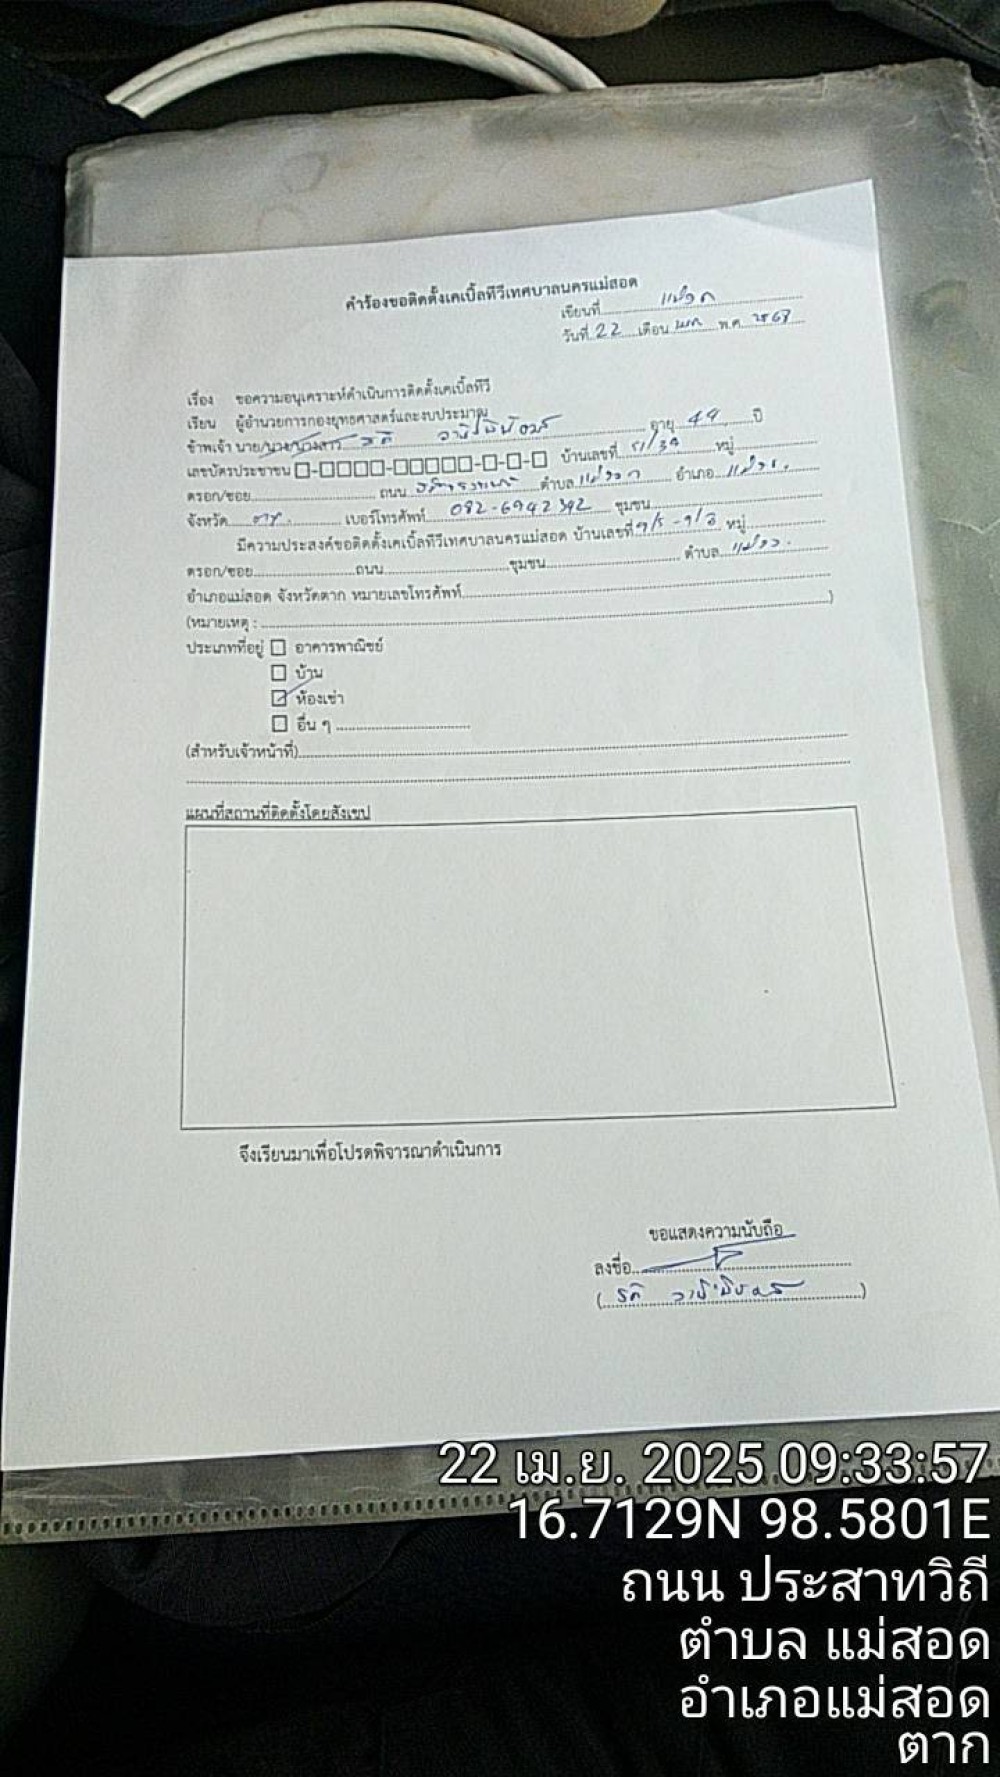 คำร้องขอติดตั้งเคเบิ้ลทีวีเทศบาลนครแม่สอด
เขียนที่ แม่สอด
วันที่ 22 เดือน พ.ศ. 2568
เรื่อง ขอความอนุเคราะห์ดำเนินการติดตั้งเคเบิ้ลทีวี
เรียน ผู้อำนวยการกองยุทธศาสตร์และงบประมาณ
ข้าพเจ้า นาย/นาง/นางสาว อายุ 49 ปี
เลขบัตรประชาชน บ้านเลขที่ 51/39 หมู่
ตรอก/ซอย ถนน ตำบล แม่สอด อำเภอ แม่สอด
จังหวัด ตาก เบอร์โทรศัพท์ 082-6942392 ชุมชน
มีความประสงค์ขอติดตั้งเคเบิ้ลทีวีเทศบาลนครแม่สอด บ้านเลขที่ หมู่
ตรอก/ซอย ถนน ชุมชน ตำบล แม่สอด
อำเภอแม่สอด จังหวัดตาก หมายเลขโทรศัพท์
(หมายเหตุ : )
ประเภทที่อยู่ อาคารพาณิชย์
บ้าน
ห้องเช่า
อื่น ๆ
(สำหรับเจ้าหน้าที่)
แผนที่สถานที่ติดตั้งโดยสังเขป
จึงเรียนมาเพื่อโปรดพิจารณาดำเนินการ
ขอแสดงความนับถือ
ลงชื่อ
22 เม.ย. 2025 09:33:57
16.7129N 98.5801E
ถนน ประสาทวิถี
ตำบล แม่สอด
อำเภอแม่สอด
ตาก